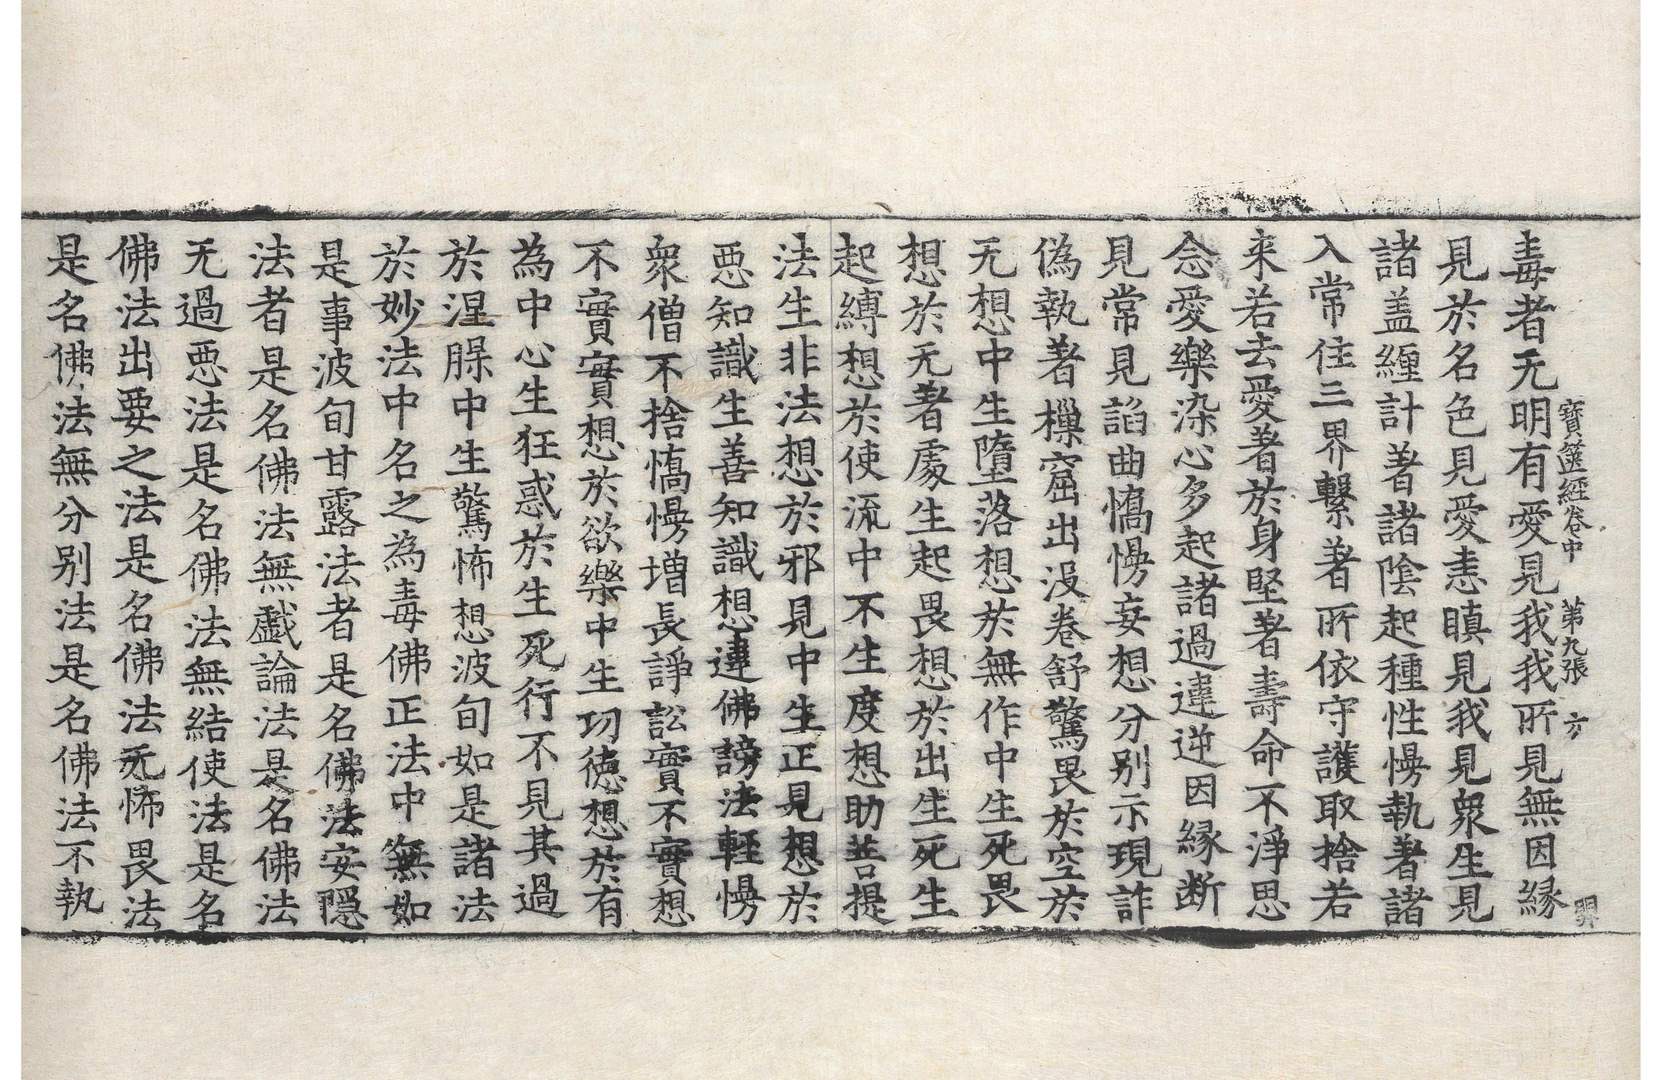 寶篋經卷中 第九張 方
毒者无明有愛見我我所見無因縁
見於名色見愛恚瞋見我見衆生見
諸盖纏計著諸陰起種性慢執著諸
入常住三界繫著所依守護取捨若
来若去愛著於身堅著壽命不淨思
念愛樂染心多起諸過違逆因縁断
見常見諂曲憍慢妄想分別示現詐
偽執著樔窟出没卷舒驚畏於空於
无想中生墮落想於無作中生死畏
想於无著處生起畏想於出生死生
起縛想於使流中不生度想助菩提
法生非法想於邪見中生正見想於
惡知識生善知識想違佛謗法輕慢
衆僧不捨憍慢增長諍訟實不實想
不實實想於欲樂中生功德想於有
為中心生狂惑於生死行不見其過
於涅槃中生驚怖想波旬如是諸法
於妙法中名之為毒佛正法中無如
是事波旬甘露法者是名佛法安隱
法者是名佛法無戲論法是名佛法
无過惡法是名佛法無結使法是名
佛法出要之法是名佛法无怖畏法
是名佛法無分別法是名佛法不執